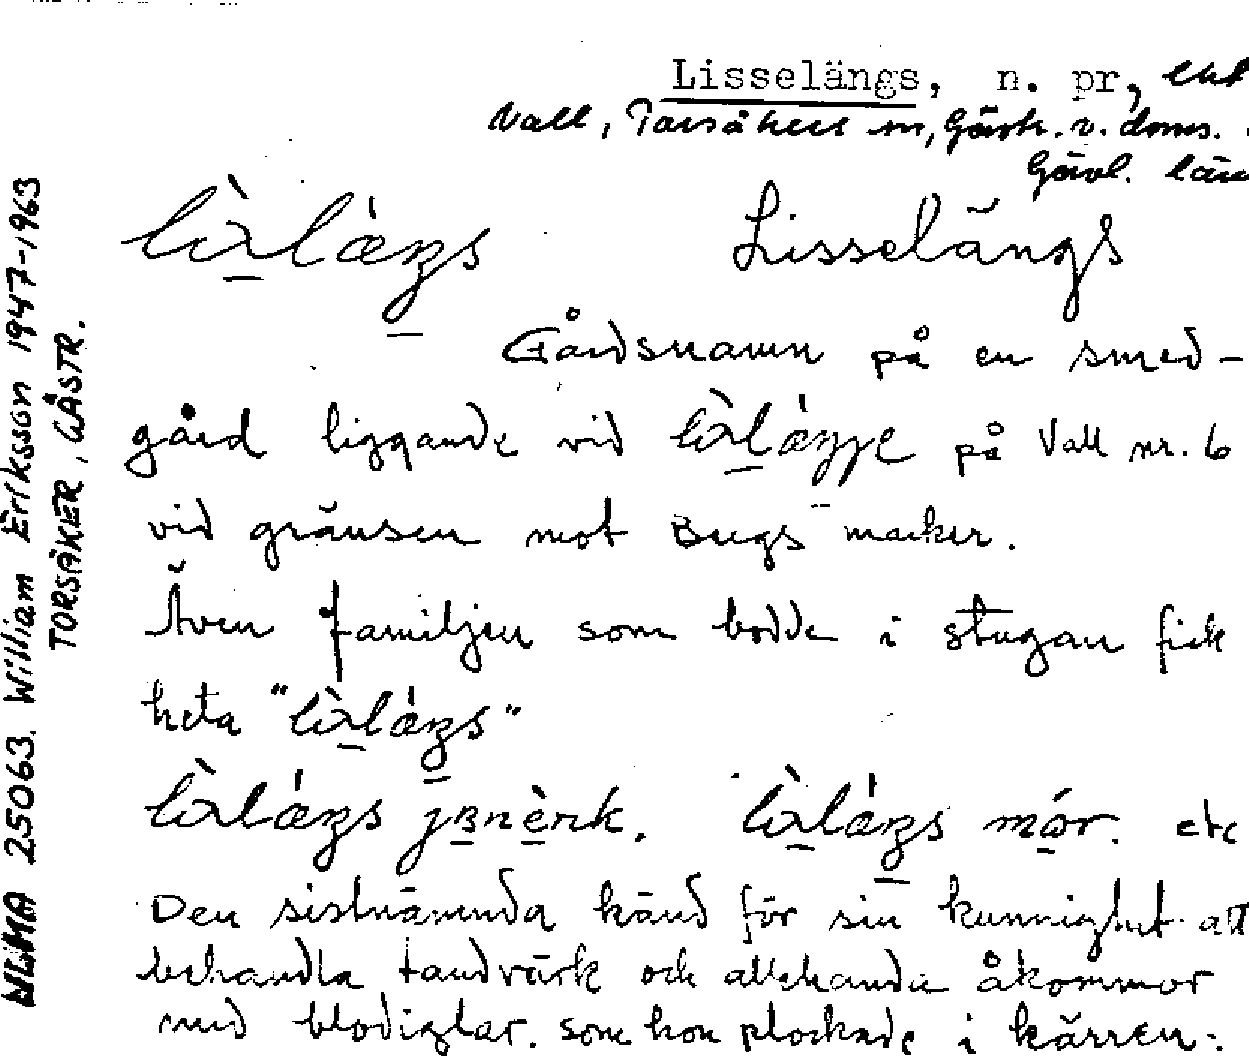 Lisselängs, n. pr,
Vall, Torsåkers sn, Gästr. v. doms.
Gävl. län
Lisselängs
Gårdsnamn på en smed-
gård liggande vid på Vall nr. 6
vid gränsen mot Bugs marker.
Även familjen som bodde i stugan fick
heta
etc
Den sistnämnda känd för sin kunnighet att
behandla tandvärk och allehanda åkommor
med blodiglar. som hon plockade i kärren.
ULMA 25063. William Eriksson 1947-1963
TORSÅKER, GÄSTR.